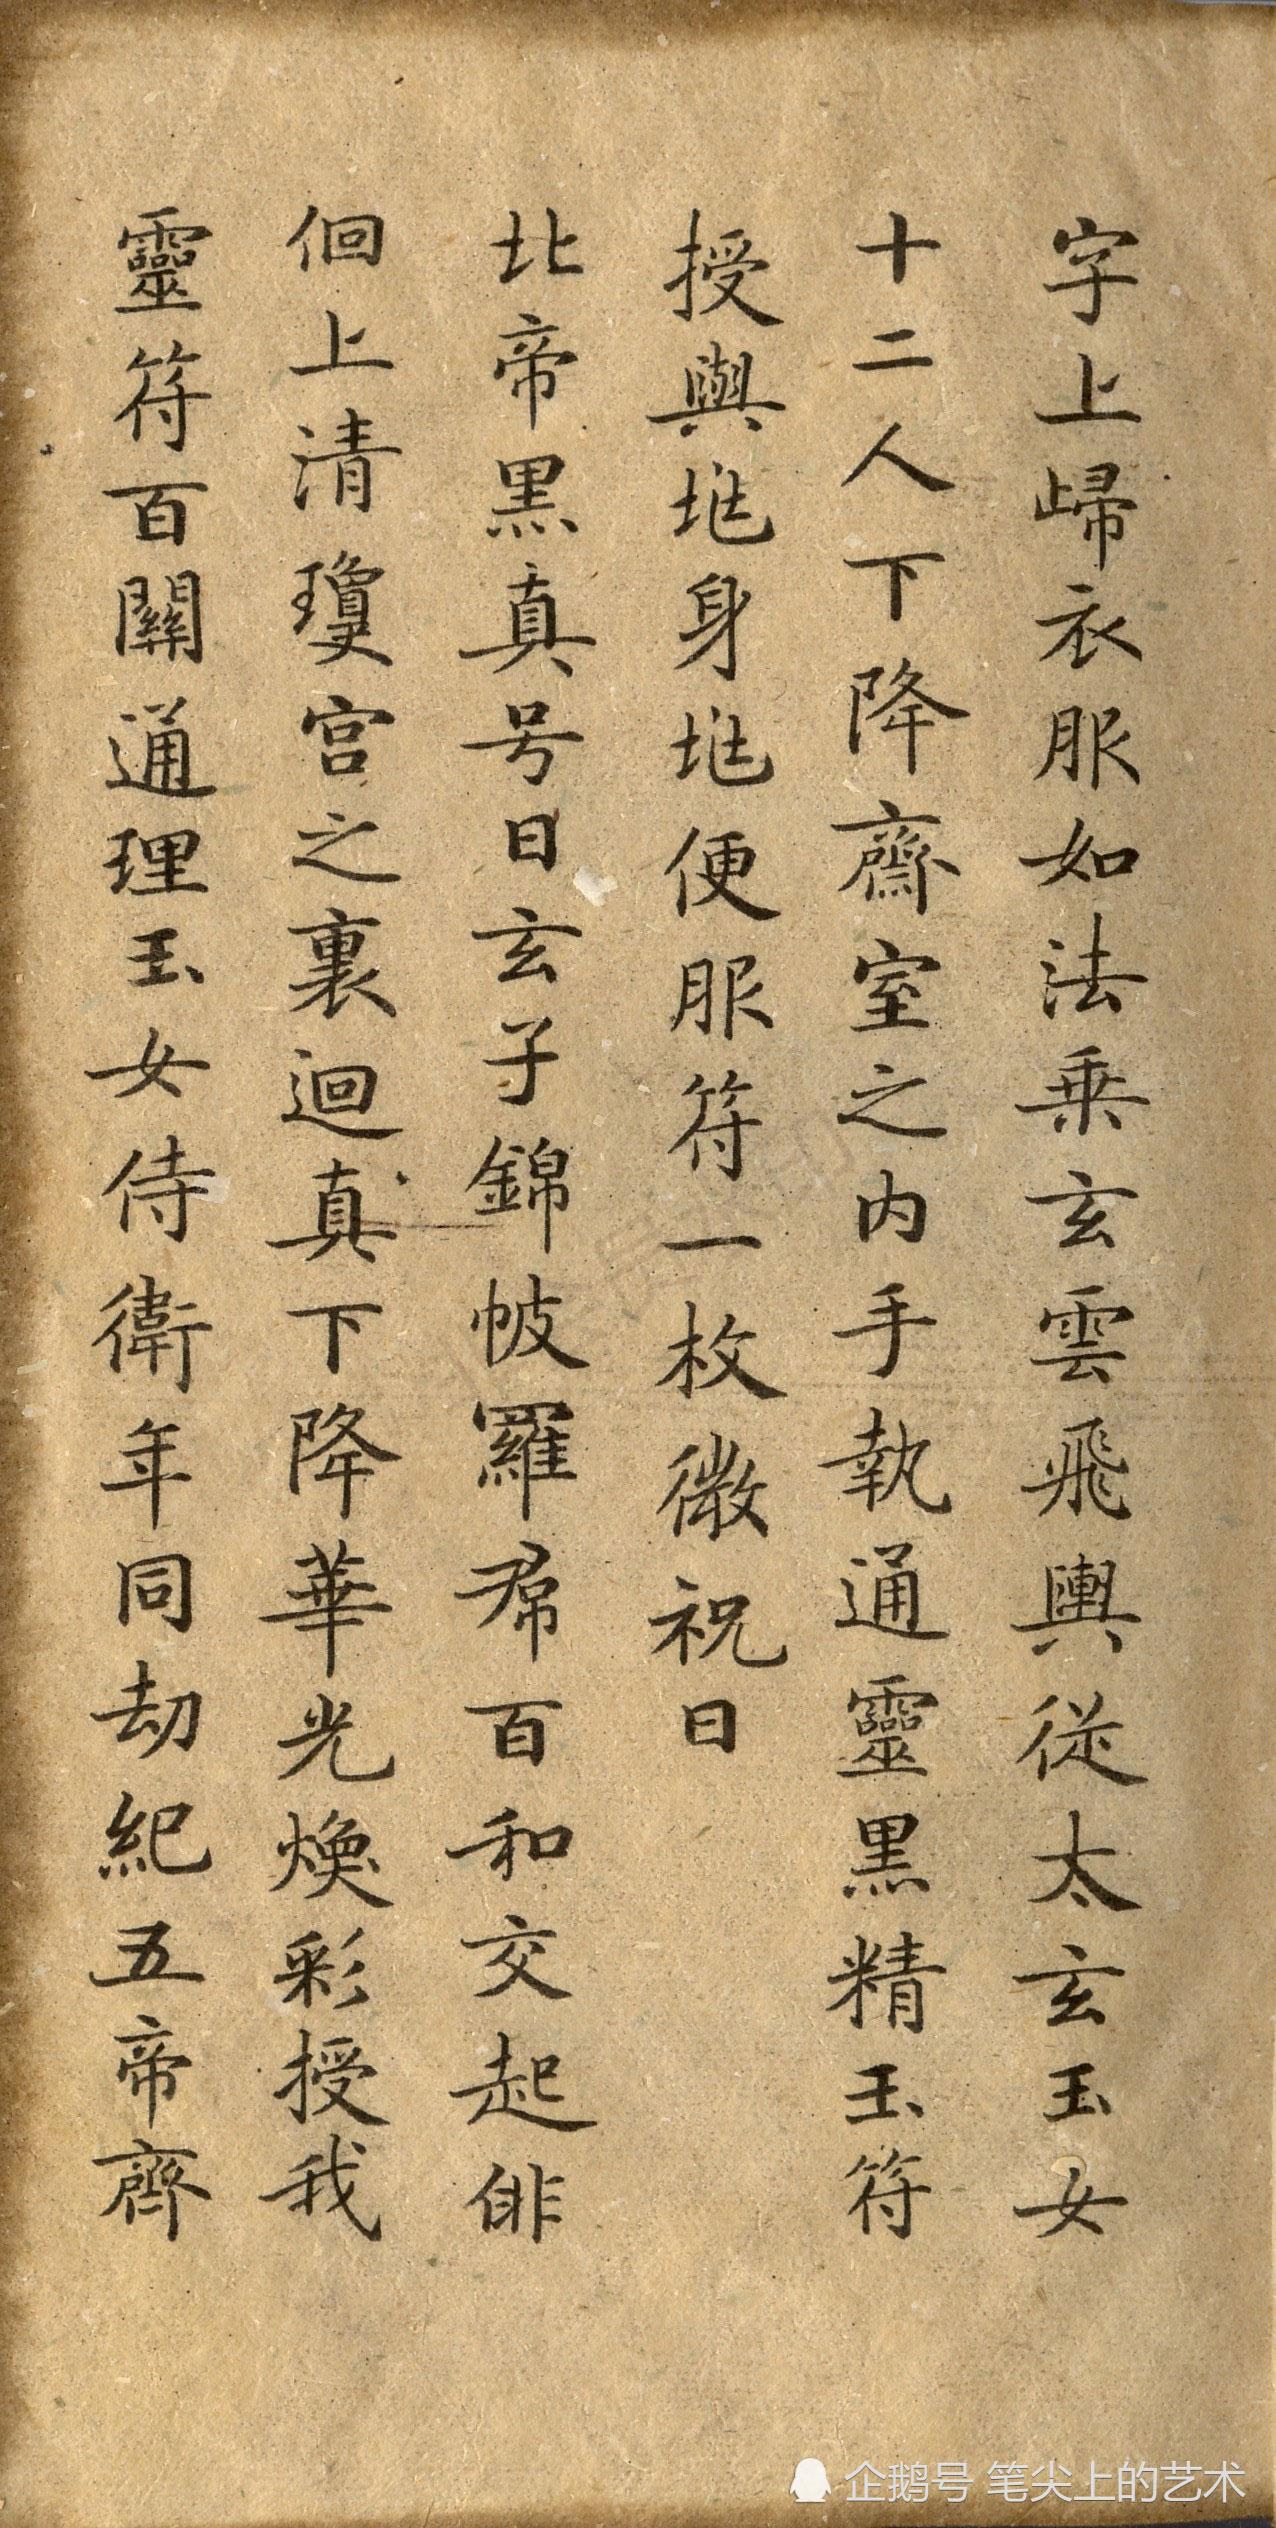 字上歸衣服如法乗玄雲飛輿従太玄玉女
十二人下降齋室之内手執通靈黒精玉符
授與兆身兆便服符一枚微祝曰
北帝黒真号曰玄子錦帔羅帬百和交起俳
佪上清瓊宮之裏迴真下降華光煥彩授我
靈符百關通理玉女侍衛年同劫紀五帝齊
企鹅号 笔尖上的艺术